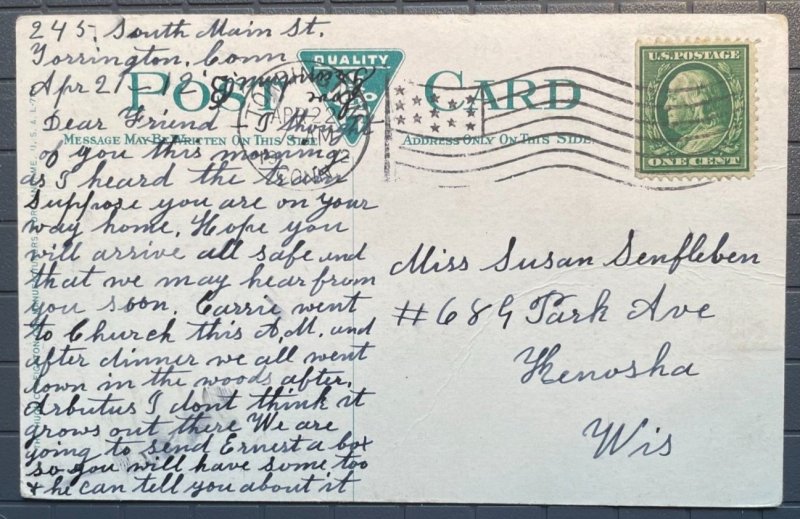 245. South Main St.
Torrington, Conn
Apr 21 - 12
QUALITY
POST CARD
APR 22
CONN
MESSAGE MAY BE WRITTEN ON THIS SIDE
ADDRESS ONLY ON THIS SIDE
Dear Friend - I thought
of you this morning
as I heard the train
Suppose you are on your
way home. Hope you
will arrive all safe and
that we may hear from
you soon. Carrie went
to Church this A.M. and
after dinner we all went
down in the woods after
Arbutus I dont think it
grows out there We are
going to send Ernest a box
so you will have some too
& he can tell you about it
U.S. POSTAGE
ONE CENT
Miss Susan Senfleben
#689 Park Ave
Kenosha
Wis